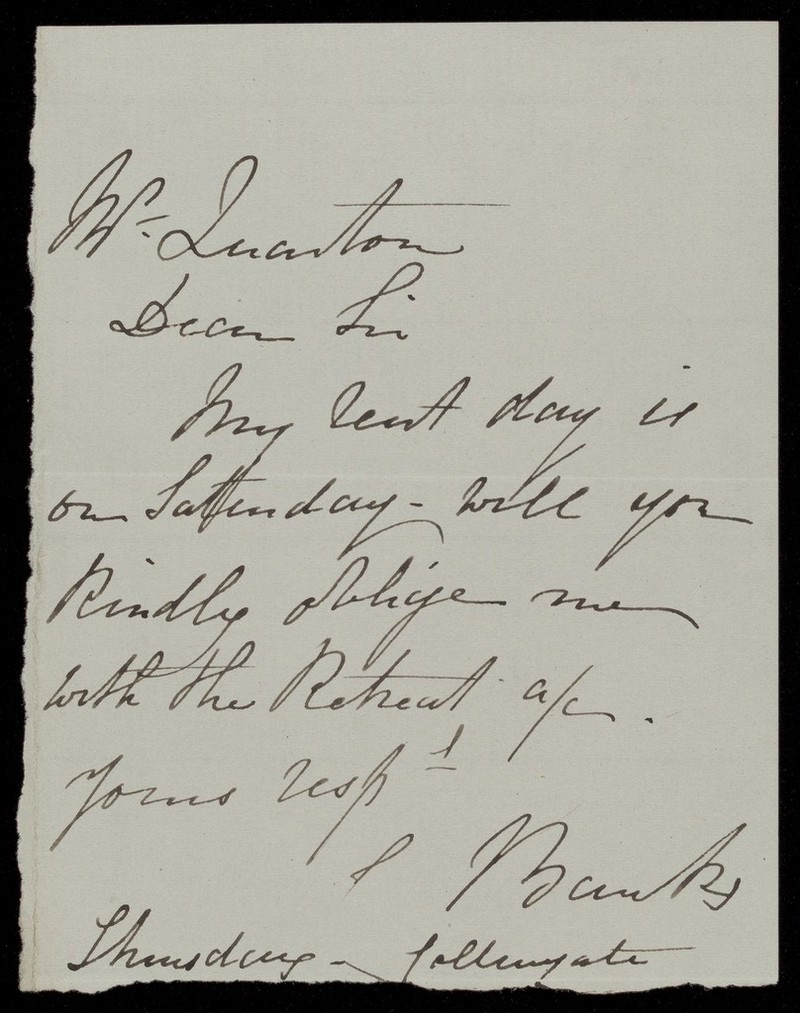 Mr. Quanton
Dear Sir
My rent day is
on Satturday - will you
kindly oblige me
with the Retreat a/c.
Yours respl
Banks
Thursday -